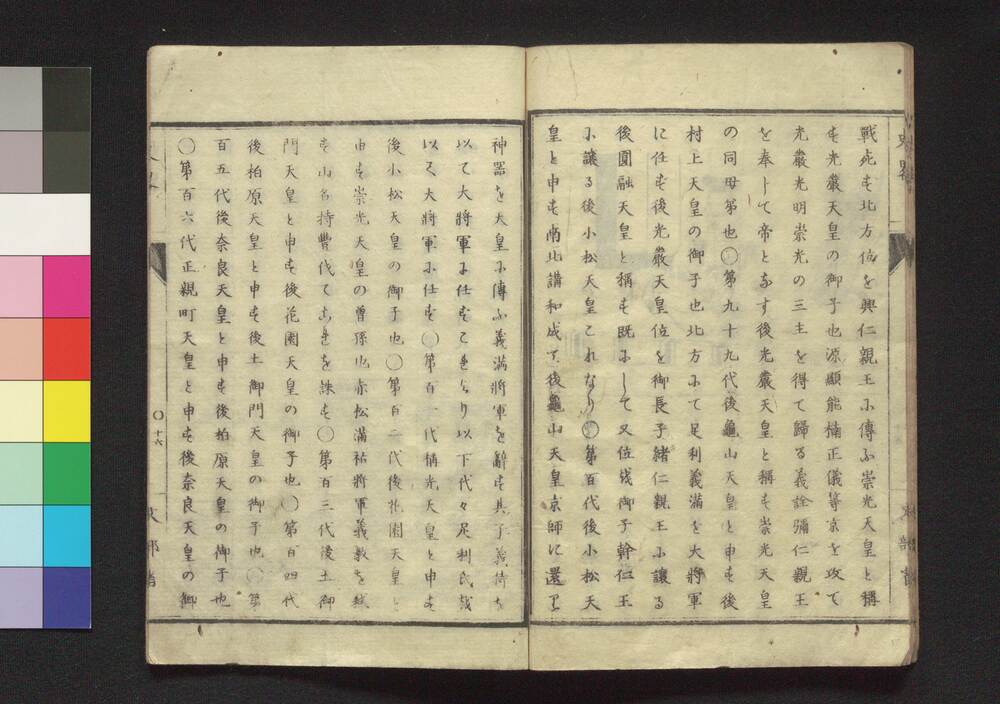 戦死す北方位を興仁親王に傳ふ崇光天皇と稱
す光嚴天皇の御子也源顯能楠正儀等京を攻て
光嚴光明崇光の三主を得て歸る義詮彌仁親王
を奉じて帝となす後光嚴天皇と稱す崇光天皇
の同母弟也〇第九十九代後龜山天皇と申す後
村上天皇の御子也北方にて足利義滿を大將軍
に任す後光嚴天皇位を御長子緒仁親王に讓る
後圓融天皇と稱す既にして又位を御子幹仁王
に讓る後小松天皇これなり〇第百代後小松天
皇と申す南北講和成て後龜山天皇京師に還り
神器を天皇に傳ふ義満將軍を辭す其子義持を
以て大將軍に任すこれより以下代々足利氏を
以て大將軍に任す〇第百一代稱光天皇と申す
後小松天皇の御子也〇第百二代後花園天皇と
申す崇光天皇の曽孫也赤松満祐將軍義教を弑
す山名持豊伐てこれを誅す〇第百三代後土御
門天皇と申す後花園天皇の御子也〇第百四代
後柏原天皇と申す後土御門天皇の御子也〇第
百五代後奈良天皇と申す後柏原天皇の御子也
〇第百六代正親町天皇と申す後奈良天皇の御
〇十六